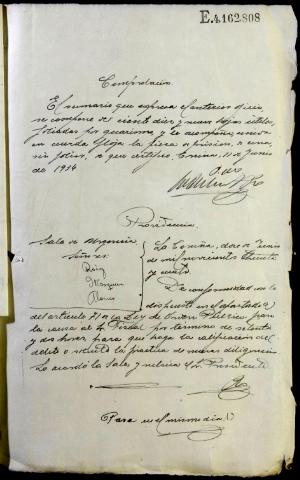 E.4.162.808
Comprobación
El sumario que expresa el anterior oficio,
se compone de ciento diez y nueve hojas útiles,
foliadas por guarismo, y le acompaña unida
en cuerda floja la pieza de prisión,
sin folios, de que certifico. Coruña, 11 de Junio
de 1934
Providencia
Sala de Urgencia
Señores
La Coruña, doce de Junio
de mil novecientos treinta
y cuatro.
De conformidad con lo
dispuesto en el apartado a)
del artículo 71 de la Ley de Orden Público, pase
la causa al Sr. Fiscal por término de setenta
y dos horas para que haga la calificación del
delito o solicite la práctica de nuevas diligencias.
Lo acordó la Sala y rubrica el Sr. Presidente
Pasa en el mismo día